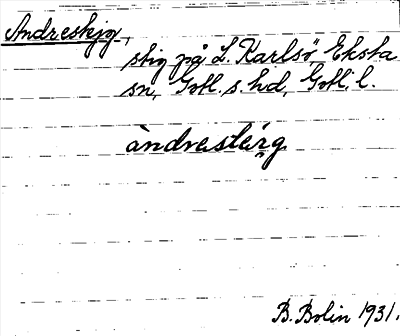 Andreskjg,
stig på L. Karlsö, Eksta
sn, Gotl. s. hd, Gotl. l.
àndrestérg
B. Bolin 1931.